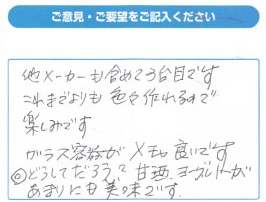 ご意見・ご要望をご記入ください
他メーカーも含めて3台目です
これまでよりも色々作れるので
楽しみです
ガラス容器がとても良いです
◎どうしてだろう？甘酒、ヨーグルトが
あまりにも美味です。